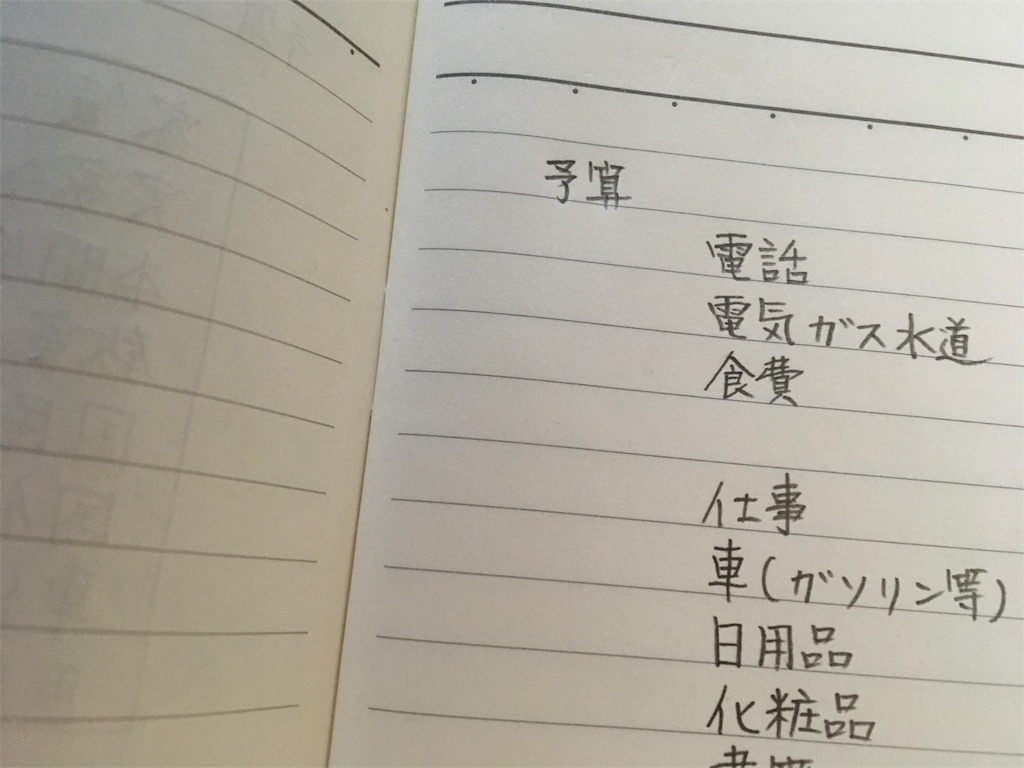 予算
電話
電気ガス水道
食費
仕事
車(ガソリン等)
日用品
化粧品